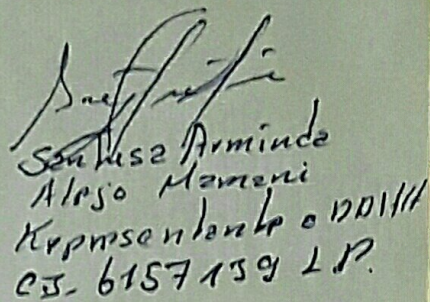 Sentusa Arminda
Alejo Mamani
Representante o DDHH
CI- 6157139 L.P.